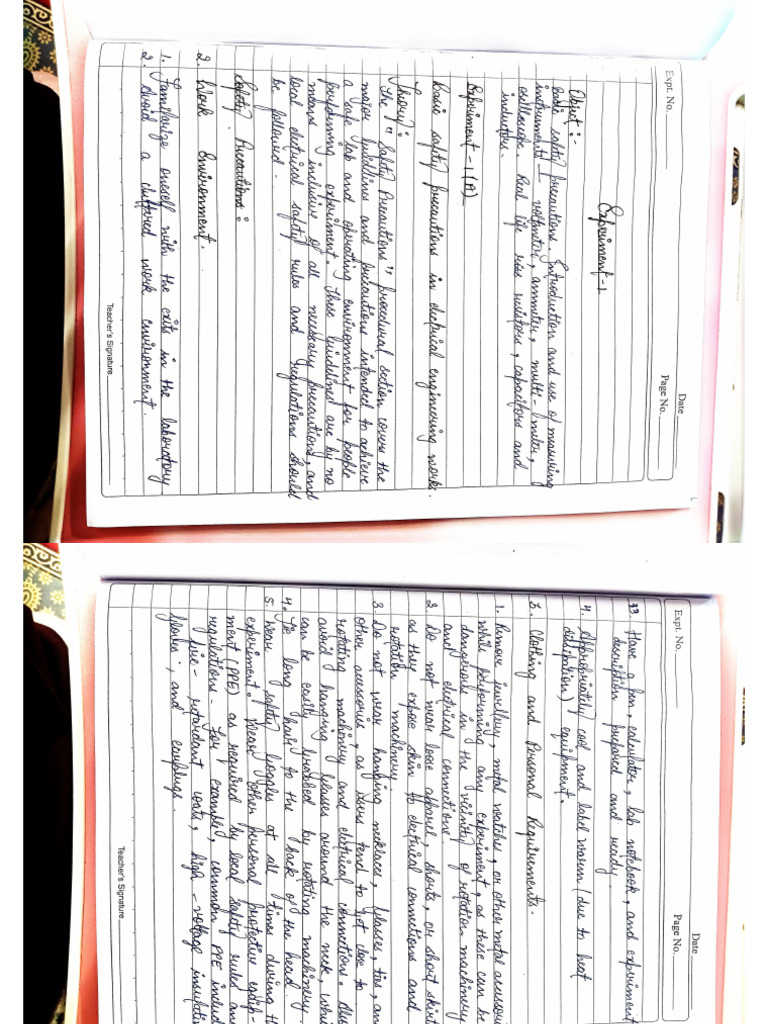 Expt. No.
Date
Page No.
Experiment-1
Object :-
basic safety precautions. Introduction and use of measuring
instruments - voltmeter, ammeter, multi-meter,
oscilloscope. Real life size resistors, capacitors and
inductor.
Experiment - 1 (A)
Basic safety precautions in electrical engineering work.
Theory :
The " Safety Precautions " procedural section covers the
major guidelines and precautions intended to achieve
a safe lab and operating environment for people
performing experiment. These guidelines are by no
means inclusive of all necessary precautions, and
local electrical safety rules and regulations should
be followed.
Safety Precautions :
2. Work Environment.
1. Familiarize oneself with the exits in the laboratory
2. Avoid a cluttered work environment.
Teacher's Signature
Expt. No.
Date
Page No.
33. Have a pen, calculator, lab notebook, and experiment
description prepared and ready.
4. Appropriately cool and label warm (due to heat
disipation) equipment.
3. Clothing and Personal Requirements.
1. Remove jewellery, metal watches, or other metal
while performing any experiment, as these can be
dangerous in the vicinity of rotation machinery
and electrical connections.
2. Do not wear loose apparel, shorts, or short
as they expose skin to electrical connections and
rotation machinery.
3. Do not wear hanging necklaces, glasses, ties,
other accessories, as items tend to get close to
rotating machinery and electrical connections.
avoid hanging glasses around the neck,
can be easily grabbed by rotating machinery.
4. Tie long hair to the back of the head.
5. Wear safety goggles at all times during
experiment. Wear other personal protective equip-
ment (PPE) as required by local safety rules
regulations. For example, common PPE
fire-retardant coats, high-voltage
gloves, and earplugs.
Teacher's Signature